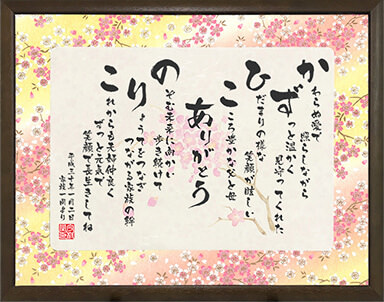 かわらぬ愛で
照らしながら
ずっと温かく
見守ってくれた
ひだまりの様な
笑顔が嬉しい
こころ豊かな父と母
ありがとう
のぞむ未来に向かい
歩き続けて
りょうてでつなぎ
つながる家族の絆
これからも夫婦仲良く
ずっと元気で
笑顔で長生きしてね
平成三十年一月一日
家族一同より